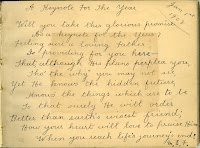 A Keynote For The Year
Jan 1st
Will you take this glorious promise
As a keynote for the Year?
Feeling such a loving Father
Is providing for you here—
That although His plans perplex you,
Tho' the 'why' you may not see,
Yet He knows the hidden future,
Knows the things which are to be
So that surely He will order
Better than earth's wisest friend,
How your heart will love to praise Him
When you reach life's journey's end!